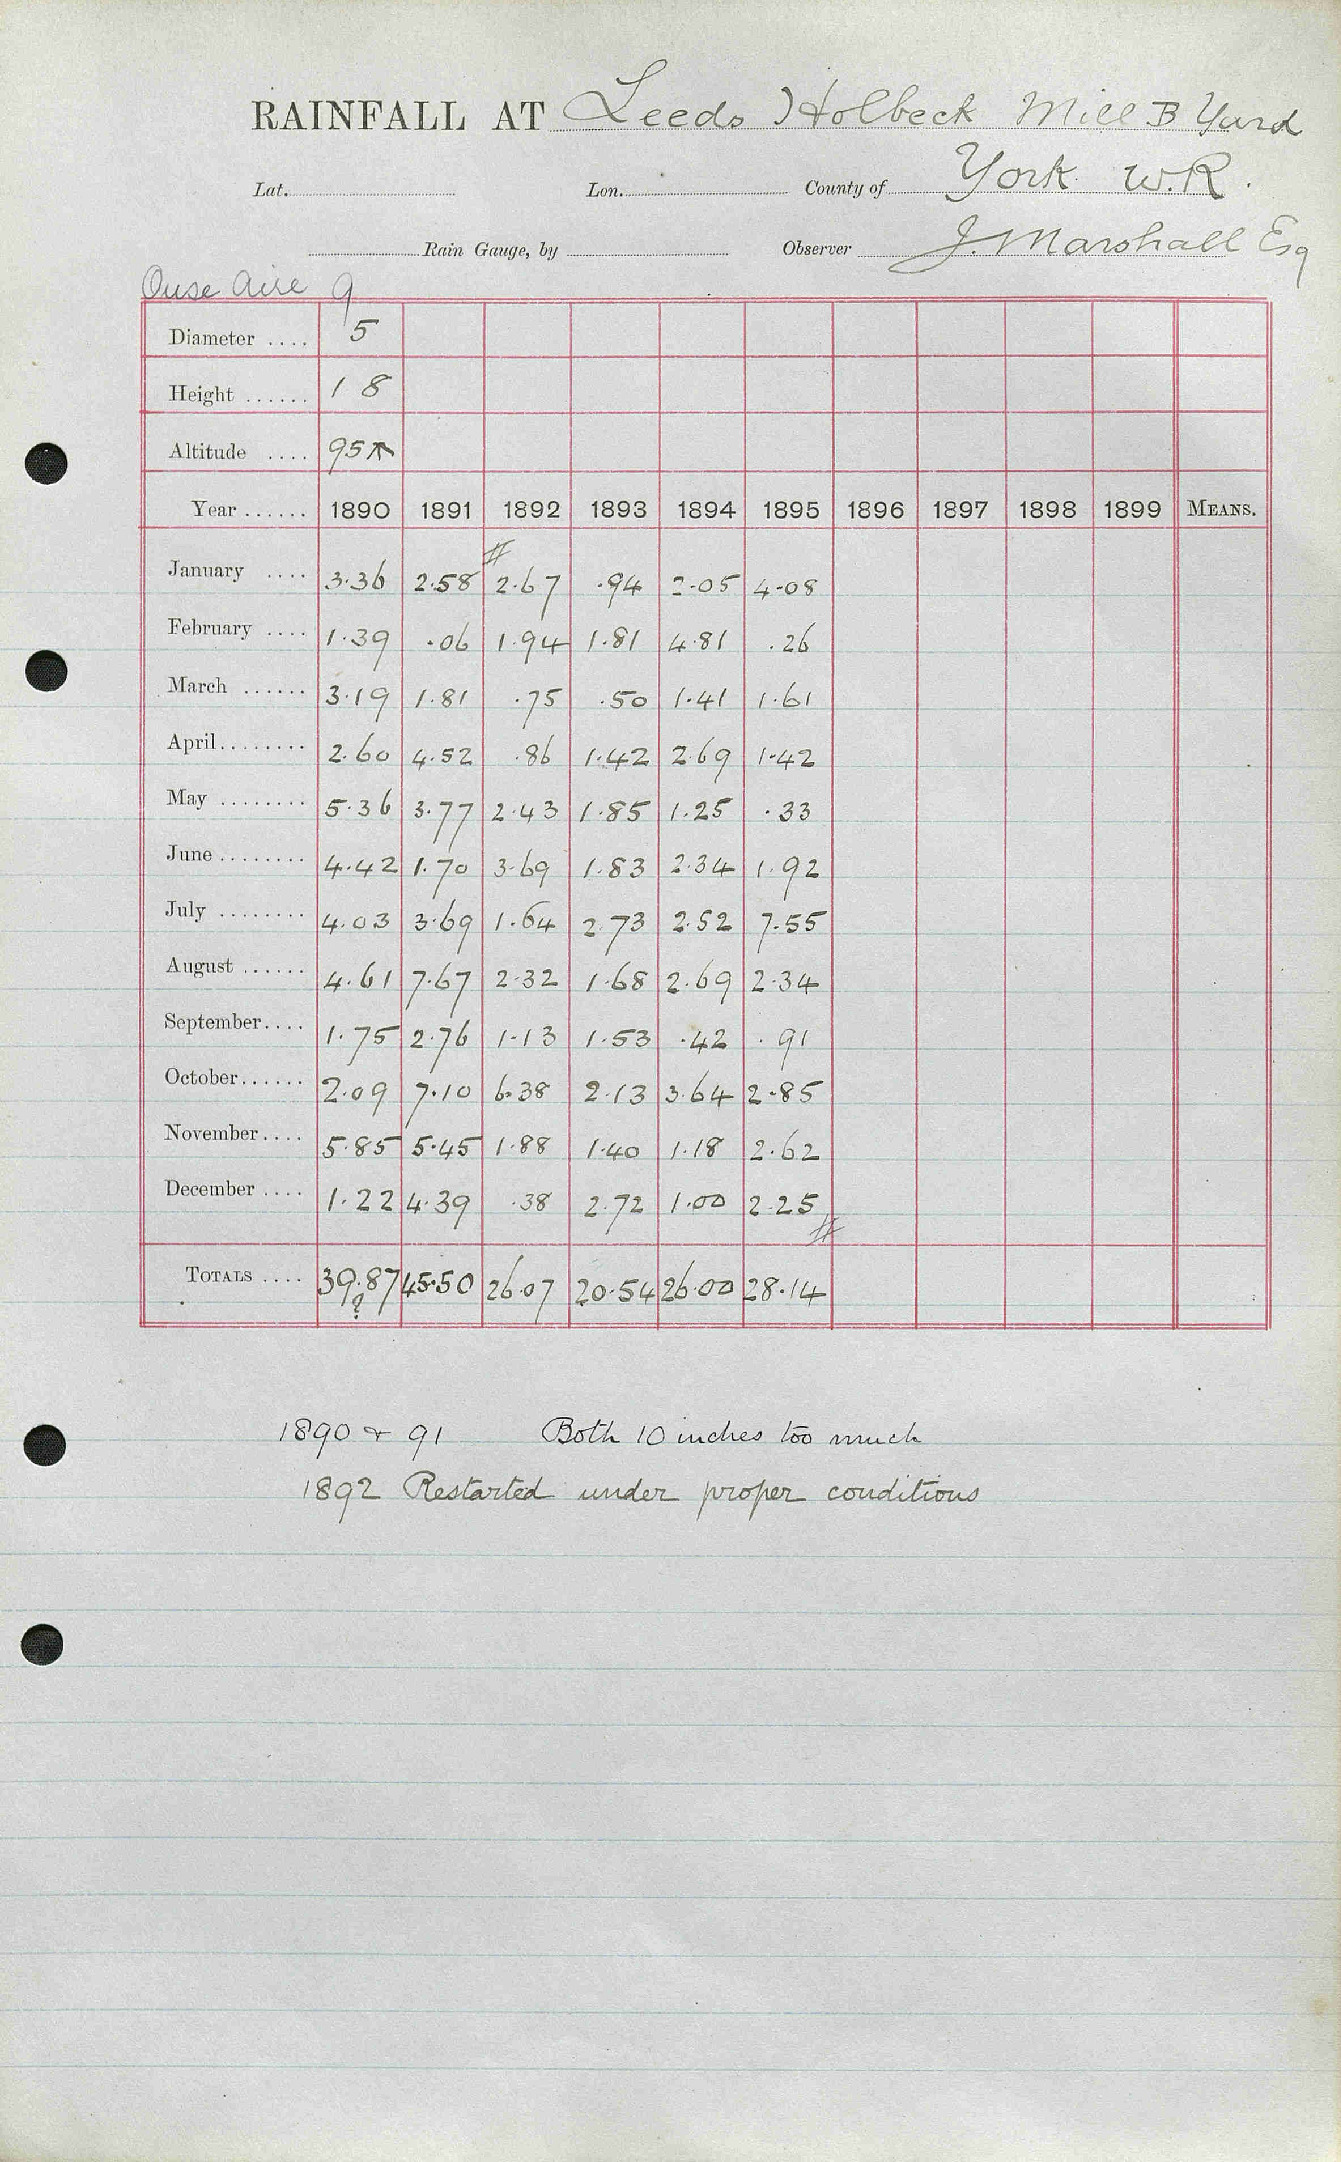 RAINFALL AT Leeds Holbeck Mill B Yard
Lat. Lon. County of York W.R.
Rain Gauge, by Observer J. Marshall Esq
Ouse Aire 9
Diameter .... 5
Height ...... 1 8
Altitude .... 95
Year ...... 1890 1891 1892 1893 1894 1895 1896 1897 1898 1899 MEANS.
January .... 3.36 2.58 2.67 .94 2.05 4.08
February .... 1.39 .06 1.94 1.81 4.81 .26
March ...... 3.19 1.81 .75 .50 1.41 1.61
April........ 2.60 4.52 .86 1.42 2.69 1.42
May ........ 5.36 3.77 2.43 1.85 1.25 .33
June ........ 4.42 1.70 3.69 1.83 2.34 1.92
July ........ 4.03 3.69 1.64 2.73 2.52 7.55
August ...... 4.61 7.67 2.32 1.68 2.69 2.34
September.... 1.75 2.76 1.13 1.53 .42 .91
October...... 2.09 7.10 6.38 2.13 3.64 2.85
November.... 5.85 5.45 1.88 1.40 1.18 2.62
December .... 1.22 4.39 .38 2.72 1.00 2.25
TOTALS .... 39.87 45.50 26.07 20.54 26.00 28.14
?
1890 & 91 Both 10 inches too much
1892 Restarted under proper conditions